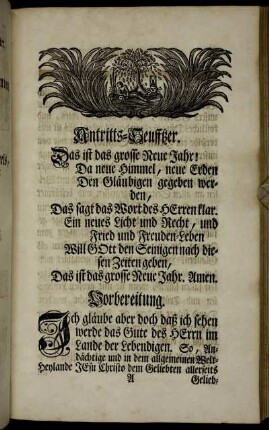 Antritts-Seufftzer.
Das ist das grosse Neue Jahr:
Da neue Himmel, neue Erden
Den Gläubigen gegeben wer-
den,
Das sagt das Wort des HErren klar.
Ein neues Licht und Recht, und
Fried und Freuden-Leben
Will GOtt den Seinigen nach die-
sen Zeiten geben,
Das ist das grosse Neue Jahr. Amen.
Vorbereitung.
Ich gläube aber doch daß ich sehen
werde das Gute des HErrn im
Lande der Lebendigen. So, An-
dächtige und in dem allgemeinen Welt-
Heylande JEsu Christo dem Geliebten allerseits
A Gelieb-